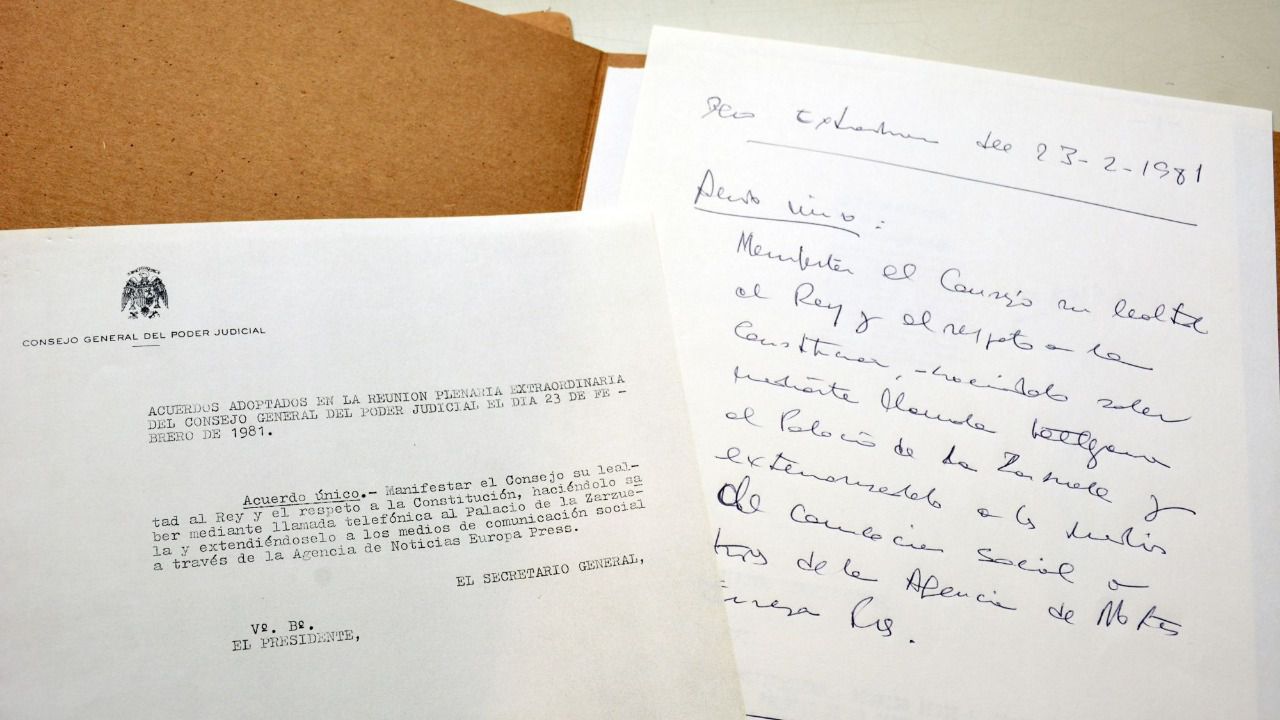 CONSEJO GENERAL DEL PODER JUDICIAL
ACUERDOS ADOPTADOS EN LA REUNION PLENARIA EXTRAORDINARIA
DEL CONSEJO GENERAL DEL PODER JUDICIAL EL DIA 23 DE FE -
BRERO DE 1981.
Acuerdo único.- Manifestar el Consejo su leal-
tad al Rey y el respeto a la Constitución, haciéndolo sa
ber mediante llamada telefónica al Palacio de la Zarzue-
la y extendiéndoselo a los medios de comunicación social
a través de la Agencia de Noticias Europa Press.
EL SECRETARIO GENERAL,
Vº. Bº.
EL PRESIDENTE,
del 23-2-1981
único:
Manifestar el Consejo su lealtad
al Rey y el respeto a la
Constitucion, haciendolo saber
mediante llamada
al Palacio de la Zarzuela y
a los medios
de comunicacion social a
de la Agencia de